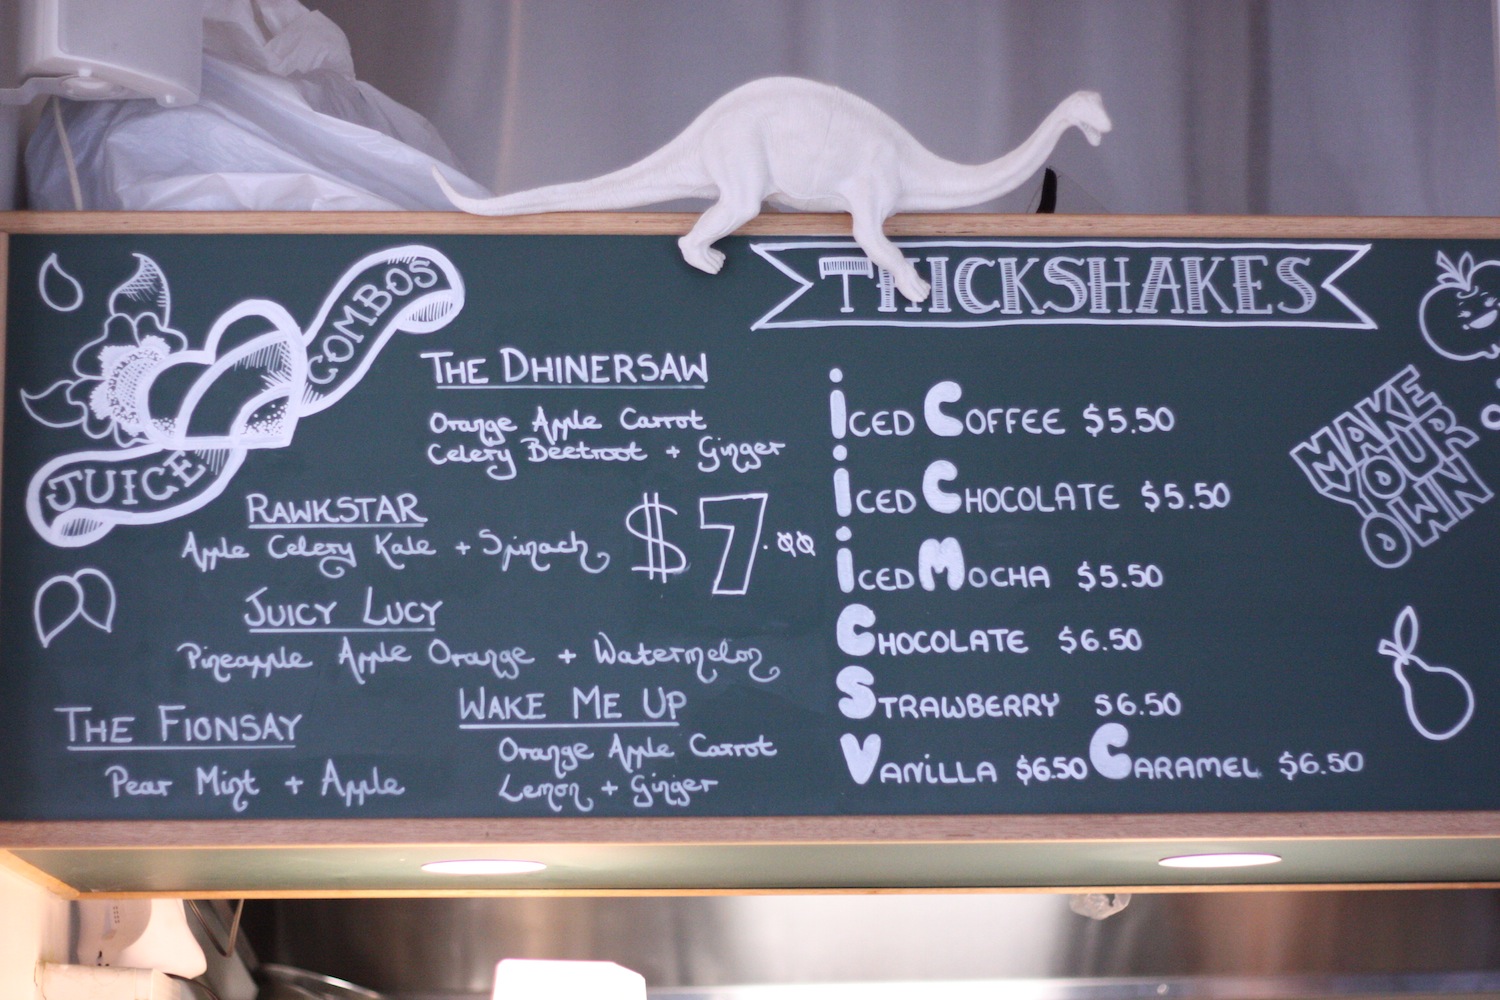 JUICE COMBOS
THE DHINERSAW
Orange Apple Carrot
Celery Beetroot + Ginger
RAWKSTAR
Apple Celery Kale + Spinach
$7.00
JUICY LUCY
Pineapple Apple Orange + Watermelon
THE FIONSAY
Pear Mint + Apple
WAKE ME UP
Orange Apple Carrot
Lemon + Ginger
THICKSHAKES
ICED COFFEE $5.50
ICED CHOCOLATE $5.50
ICED MOCHA $5.50
CHOCOLATE $6.50
STRAWBERRY $6.50
VANILLA $6.50 CARAMEL $6.50
MAKE
YOUR
OWN